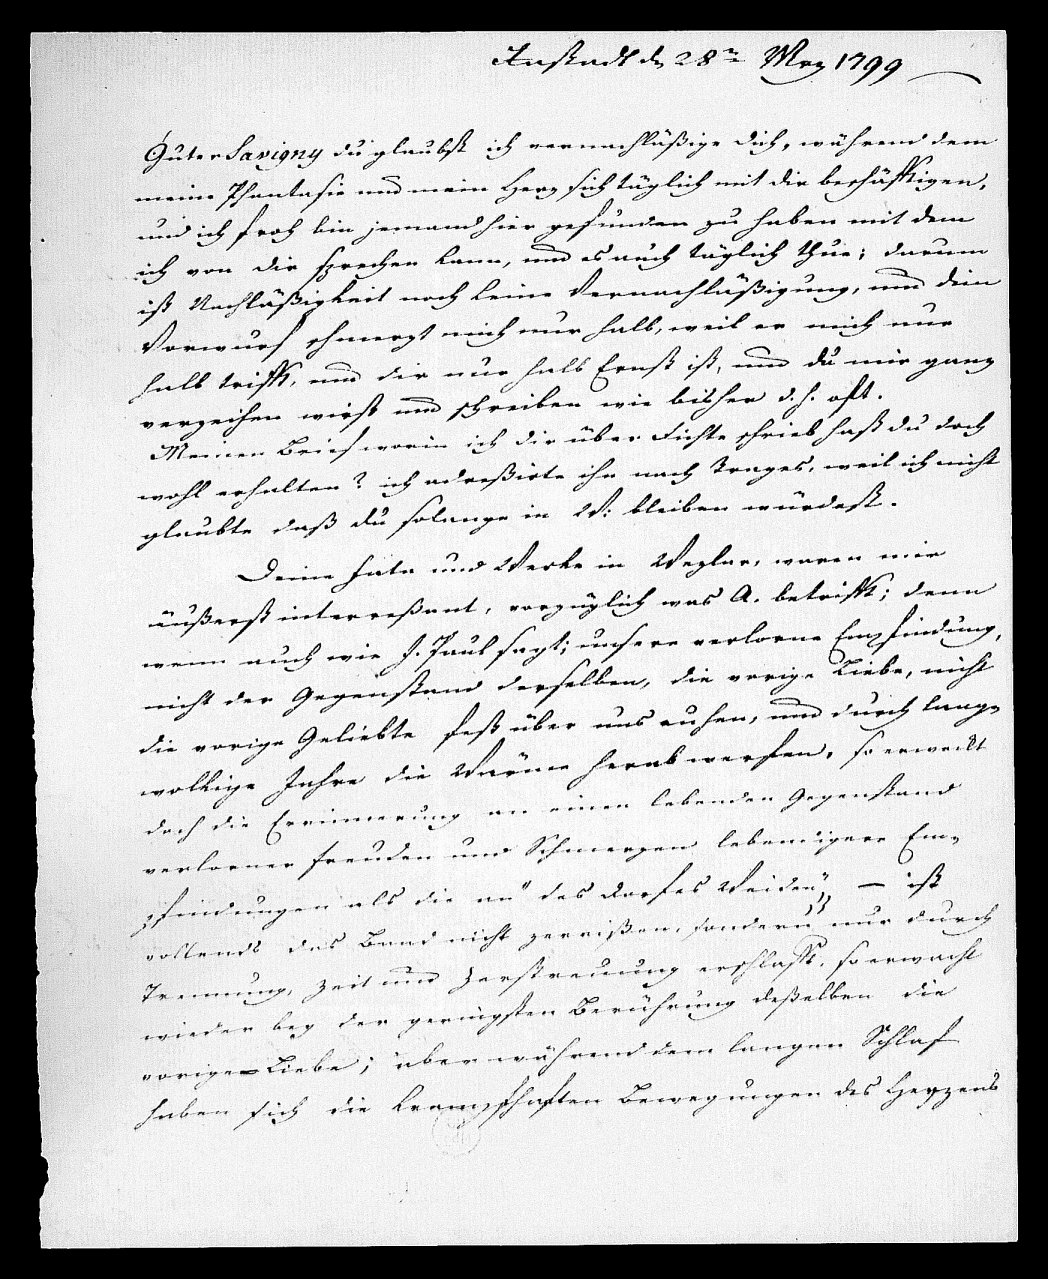 Jnstadt d 28n May 1799
Guter Savigny du glaubst ich vernachläßige dich, während dem
meine Phantasie und mein Herz sich täglich mit dir beschäftigen,
und ich froh bin jemand hier gefunden zu haben mit dem
ich von dir sprechen kann, und es auch täglich thue; darum
ist Nachläßigkeit noch keine Vernachläßigung, und dein
Vorwurf schmerzt mich nur halb, weil er mich nur
halb trifft, und dir nur halb Ernst ist, und du mir ganz
verzeihen wirst und schreiben wie bisher d. h. oft.
Meinen Brief worin ich dir über Fichte schrieb hast du doch
wohl erhalten? ich adreßirte ihn nach Trages, weil ich nicht
glaubte daß du solange in W: bleiben würdest.
Deine fata und Werke in Wezlar, waren mir
äußerst interreßant, vorzüglich was A. betrifft; denn
wenn auch wie J. Paul sagt; unsere verlorne Empfindung,
nicht der Gegenstand derselben, die vorige Liebe, nicht
die vorige Geliebte fest über uns ruhen, und durch lange
wolkige Jahre die Wärme herab werfen, so erweckt
doch die Errinnerung an einen lebenden Gegenstand
verlorner Freuden und Schmerzen lebendigere Em-
pfindungen als die an "des Dorfes Weiden" — ist
vollends das Band nicht zerrißen, sondern nur durch
Trennung, Zeit und Zerstreuung erschlafft, so erwacht
wieder bey der geringsten Berührung deßelben die
vorige Liebe; aber während dem langen Schlaf
haben sich die krampfhaften Bewegungen des Herzens